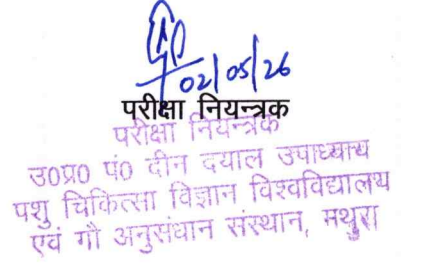 02/05/26
परीक्षा नियन्त्रक
परीक्षा नियन्त्रक
उ०प्र० पं० दीन दयाल उपाध्याय
पशु चिकित्सा विज्ञान विश्वविद्यालय
एवं गौ अनुसंधान संस्थान, मथुरा